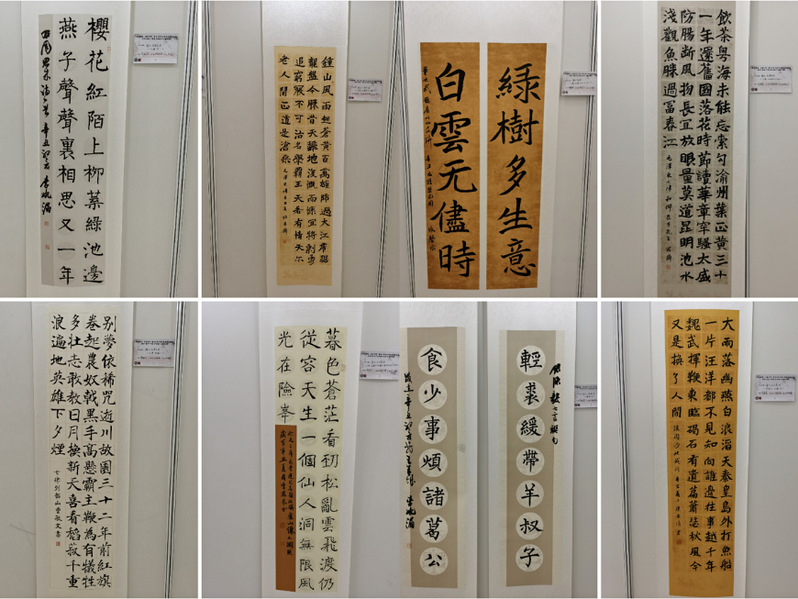 櫻花紅陌上柳葉綠池邊
燕子聲聲裏相思又一年
鍾山風雨起蒼黃百萬雄師過大江虎踞
龍盤今勝昔天翻地覆慨而慷宜將剩勇
追窮寇不可沽名學霸王天若有情天亦
老人間正道是滄桑
綠樹多生意
白雲无儘時
飲茶粤海未能忘索句渝州葉正黃三十
一年還舊國落花時節讀華章牢騷太盛
防腸斷風物長宜放眼量莫道昆明池水
淺觀魚勝過富春江
别夢依稀咒逝川故園三十二年前紅旗
卷起農奴戟黑手高懸霸主鞭為有犧牲
多壯志敢教日月換新天喜看稻菽千重
浪遍地英雄下夕煙
暮色蒼茫看勁松亂雲飛渡仍
從容天生一個仙人洞無限風
光在險峯
輕裘緩帶羊叔子
食少事煩諸葛公
大雨落幽燕白浪滔天秦皇島外打魚船
一片汪洋都不見知向誰邊往事越千年
魏武揮鞭東臨碣石有遺篇蕭瑟秋風今
又是換了人間